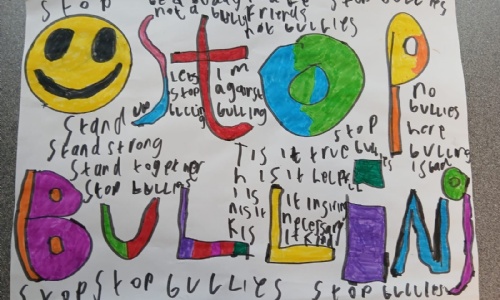 STOP be a buddy STOP BULLIES
not a bully friends
not bullies
STOP
Lets
stop
bullcing
I'm
against
bullying
no
bullies
here
bulling
is bad
Stand up
Stand strong
Stand together
Stop bullies
stop
bullies
T is it true
h is it helpful
I is it insiring
n is it necessary
k is it kind
BULLINJ
STOP STOP BULLIES STOP BULLIES